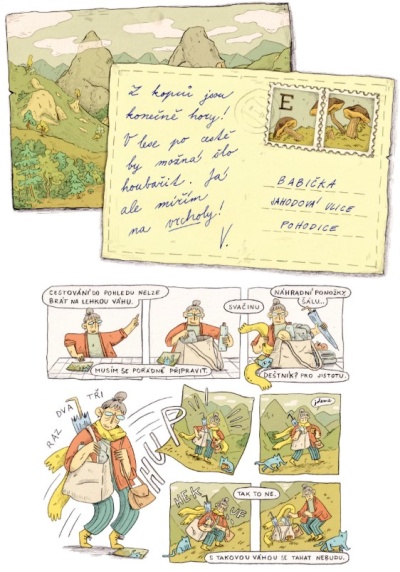 Z kopců jsou
konečně hory!
V lese po cestě
by možná šlo
houbařit. Já
ale mířím
na vrcholy!
V.
E
BABIČKA
JAHODOVÁ ULICE
POHODICE
CESTOVÁNÍ DO POHLEDU NELZE
BRÁT NA LEHKOU VÁHU.
MUSÍM SE POŘÁDNĚ PŘIPRAVIT.
SVAČINU
NÁHRADNÍ PONOŽKY,
ŠÁLU...
DEŠTNÍK? PRO JISTOTU.
RAZ DVA TŘI
HUP
jdeme
HEK
UF
TAK TO NE.
S TAKOVOU VÁHOU SE TAHAT NEBUDU.